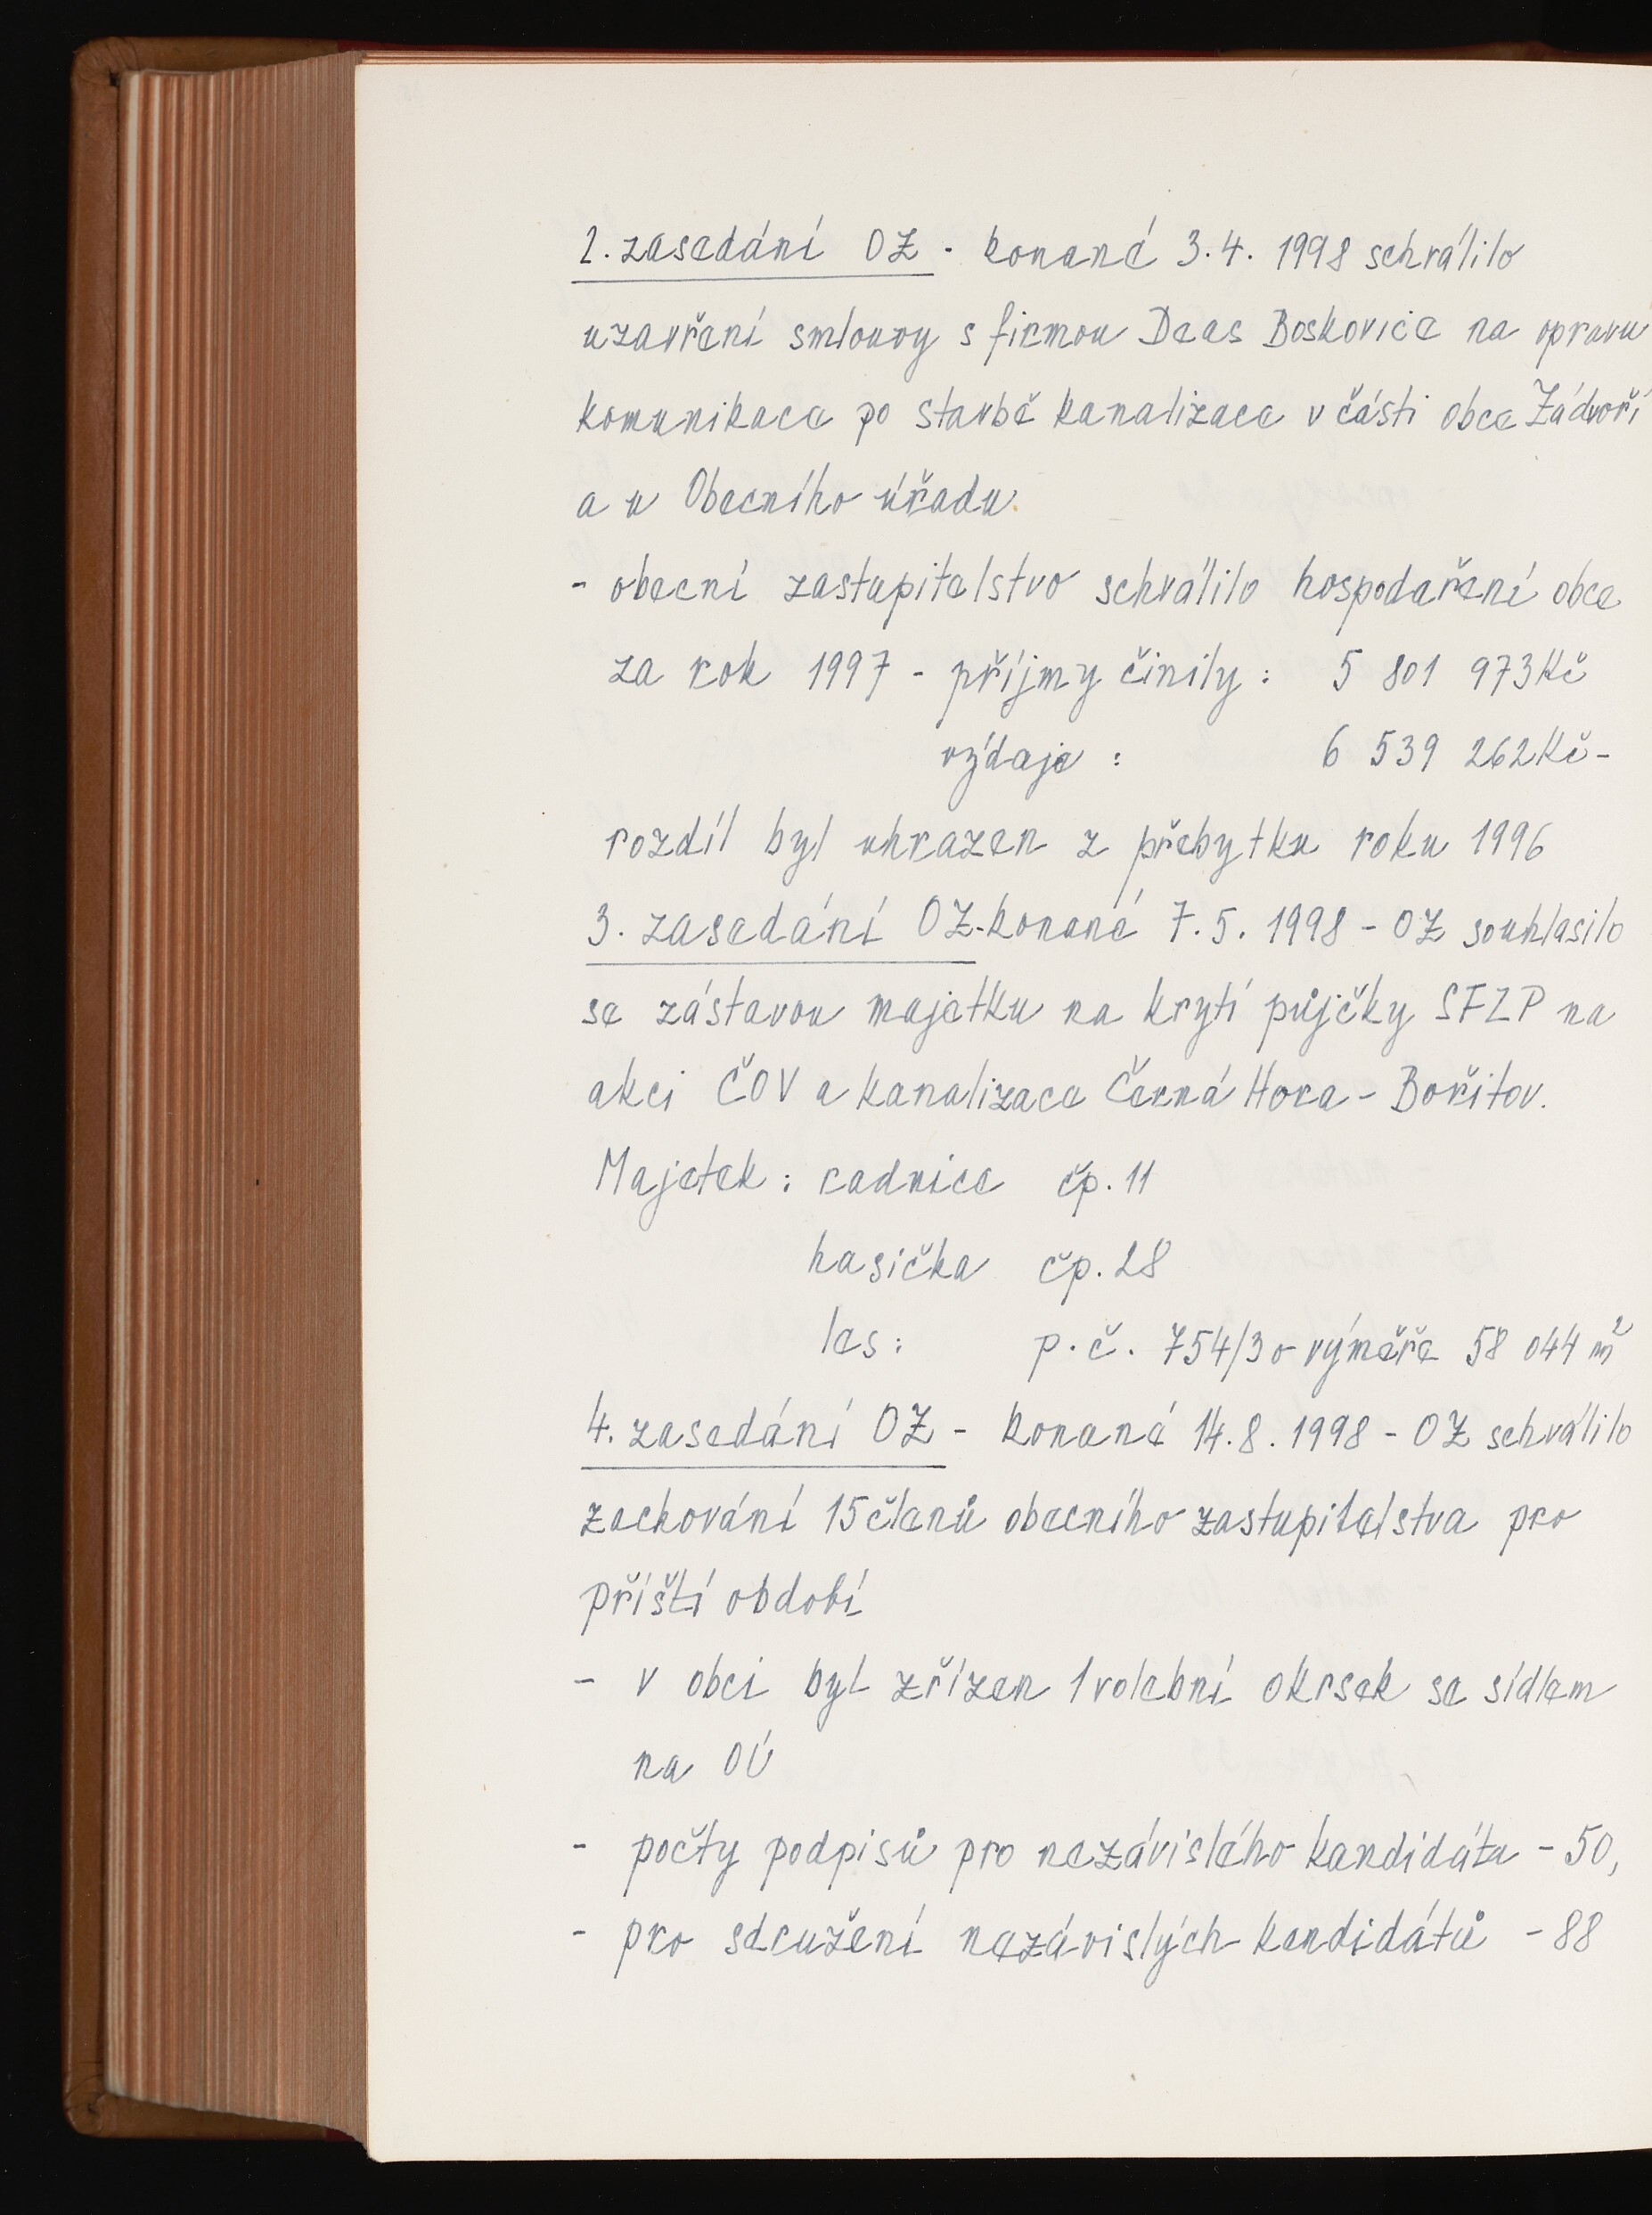 2. zasedání OZ - konané 3.4. 1998 schválilo
uzavření smlouvy s firmou Deas Boskovice na opravu
komunikace po stavbě kanalizace v části obce Zádvoří
a u Obecního úřadu.
- obecní zastupitelstvo schválilo hospodaření obce
za rok 1997 - příjmy činily : 5 801 973 Kč
výdaje : 6 539 262 Kč -
rozdíl byl uhrazen z přebytku roku 1996
3. zasedání OZ - konané 7.5. 1998 - OZ souhlasilo
se zástavou majetku na krytí půjčky SFZP na
akci ČOV a kanalizace Černá Hora - Bořitov.
Majetek : radnice čp. 11
hasička čp. 28
les : p.č. 754/3 o výměře 58 044 m²
4. zasedání OZ - konané 14.8. 1998 - OZ schválilo
zachování 15 členů obecního zastupitelstva pro
příští období
- v obci byl zřízen 1 volební okrsek se sídlem
na OÚ
- počty podpisů pro nezávislého kandidáta - 50,
- pro sdružení nezávislých kandidátů - 88